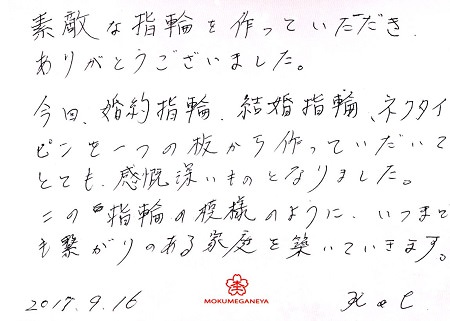 素敵な指輪を作っていただき
ありがとうございました。
今回、婚約指輪、結婚指輪、ネクタイ
ピンを一つの板から作っていただいて
とても、感慨深いものとなりました。
この指輪の模様のように、いつまで
も繋がりのある家庭を築いていきます。
2017.9.16
MOKUMEGANEYA